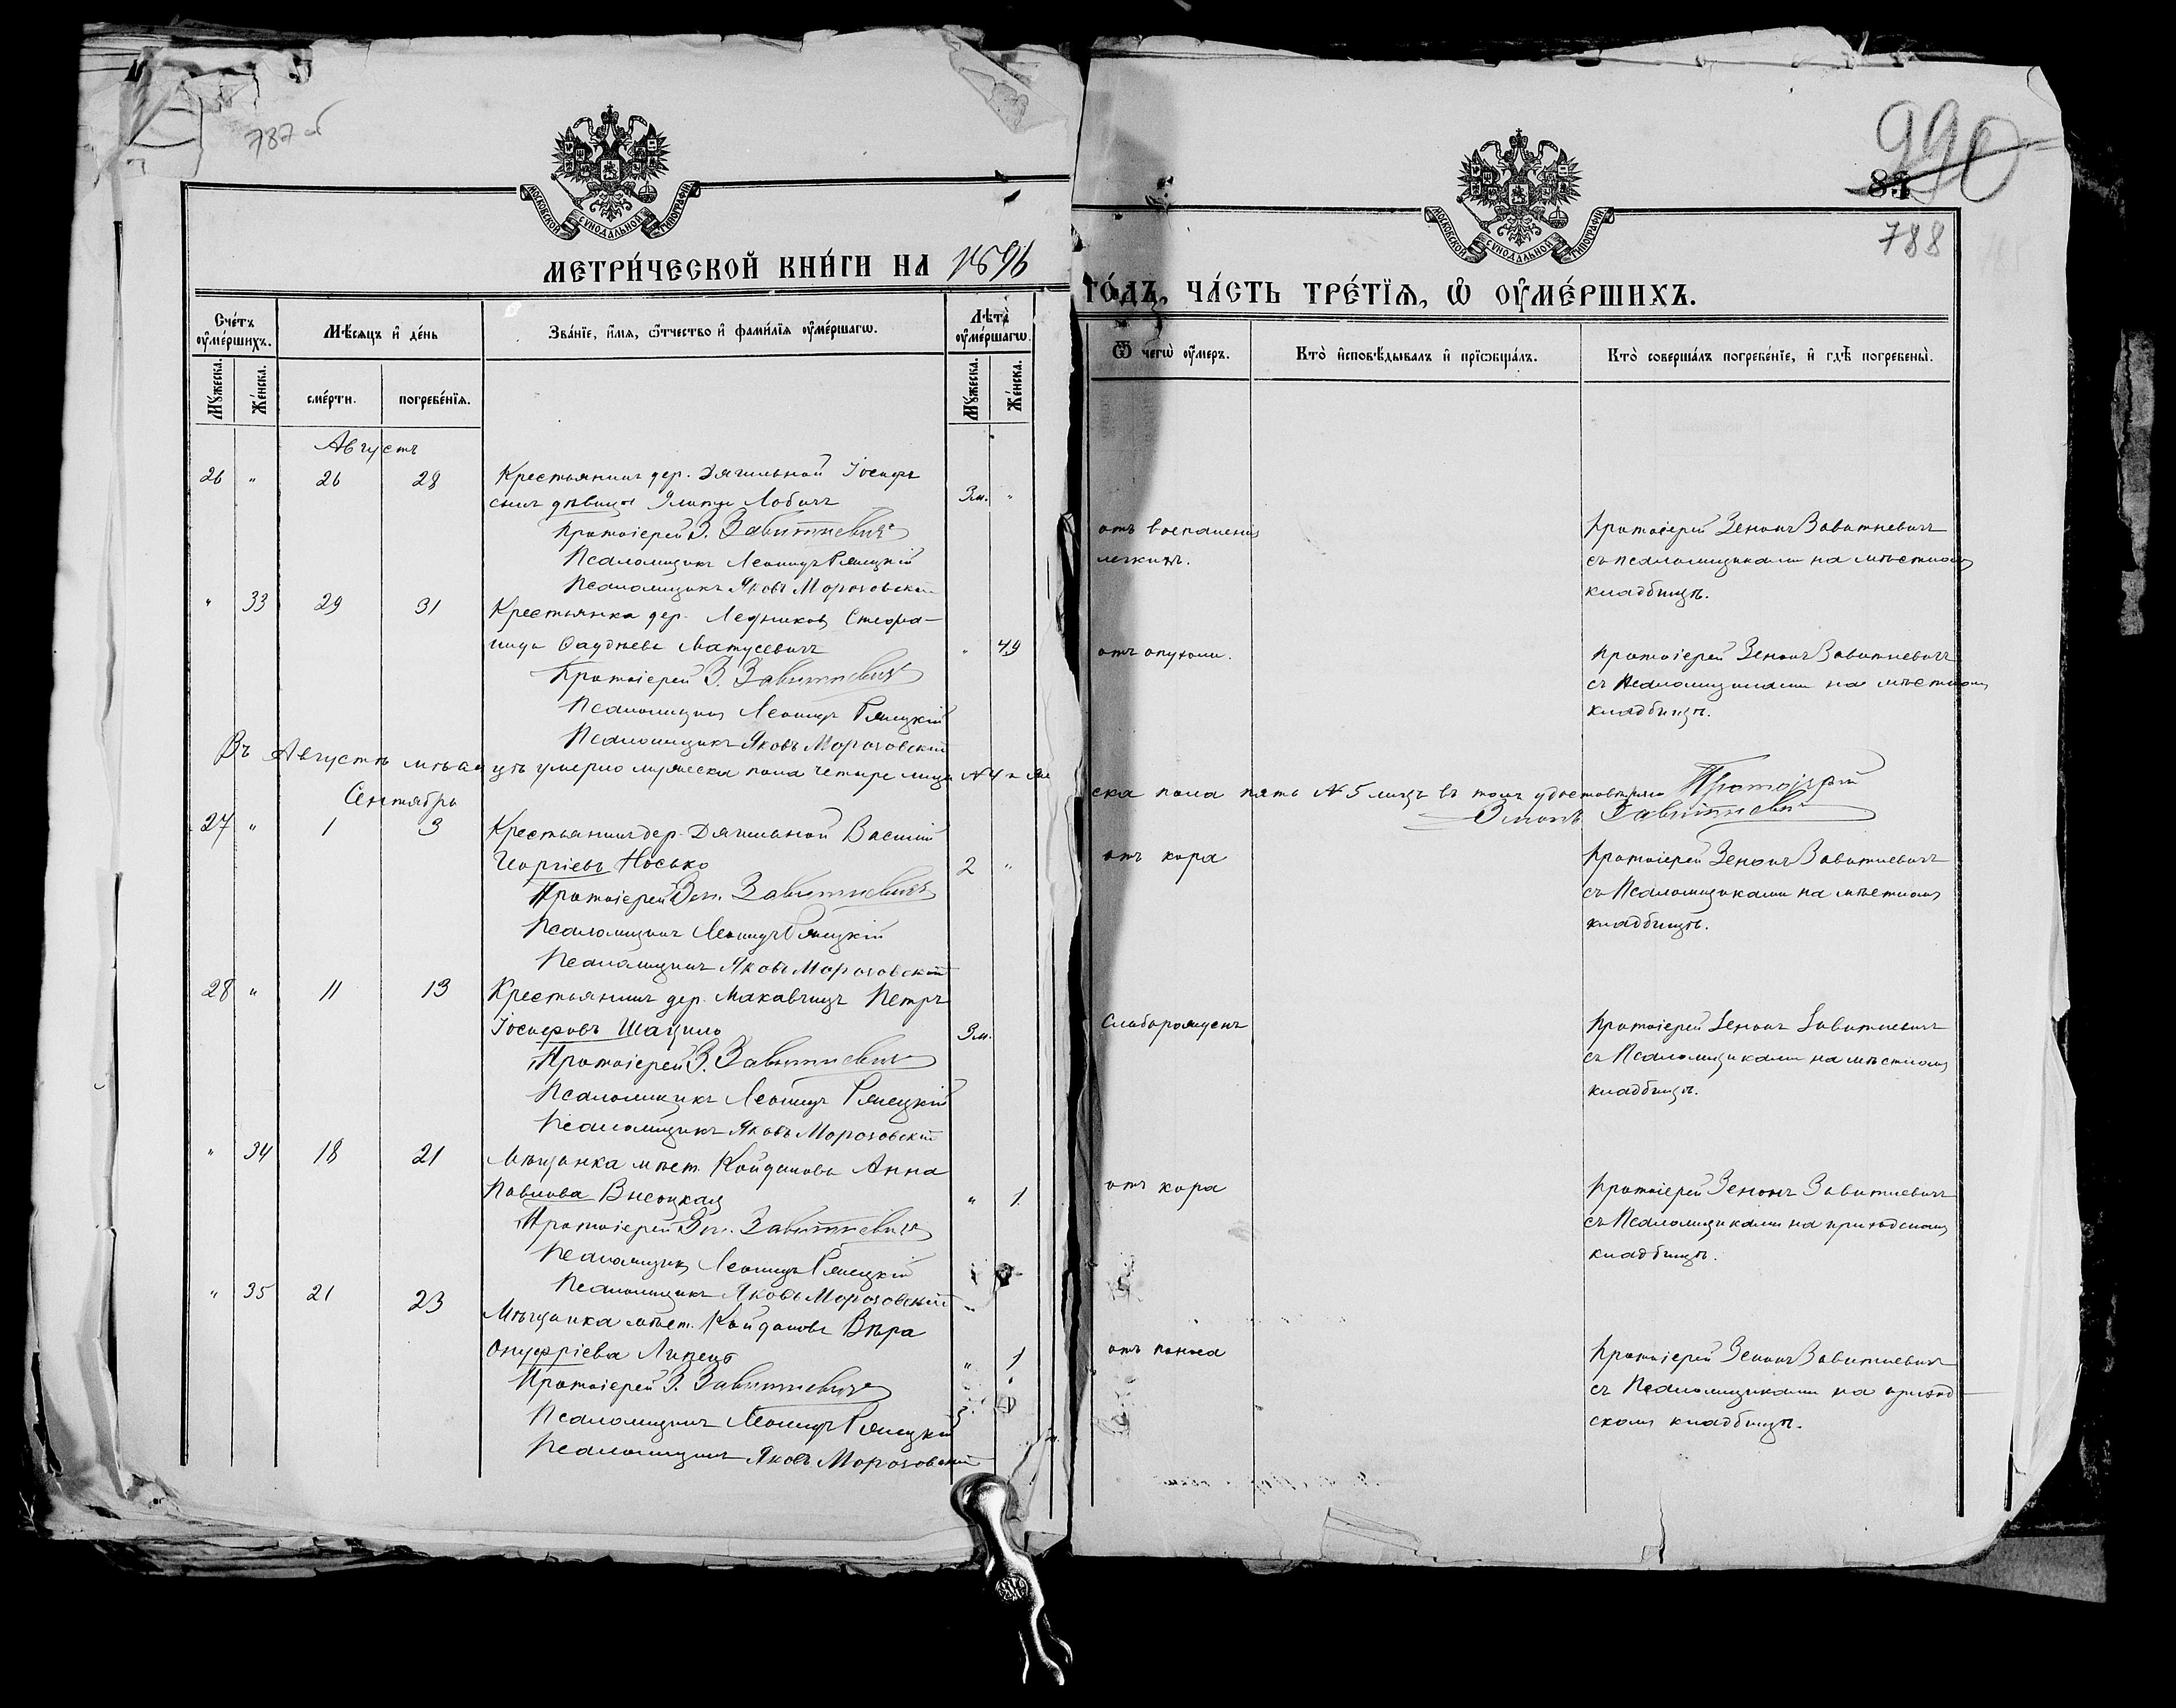 787 об
990
85
788
МОСКОВСКОЙ СѴНОДАЛЬНОЙ ТИПОГРАФІИ
МОСКОВСКОЙ СѴНОДАЛЬНОЙ ТИПОГРАФІИ
МЕТРИ́ЧЕСКОЙ КНИ́ГИ НА 1896
ГО́ДЪ, ЧА́СТЬ ТРЕ́ТЇѦ, Ѡ҆ ОУ҆МЕ́РШИХЪ.
Сче́тъ оу҆ме́ршихъ.
Мꙋ́жеска.
Же́нска.
Мѣ́сѧцъ и҆ де́нь
сме́рти.
погребе́нїѧ.
Зва́нїе, и҆́мѧ, ѻ҆́тчество и҆ фами́лїѧ оу҆ме́ршагѡ.
Лѣ́та оу҆ме́ршагѡ.
Мꙋ́жеска.
Же́нска.
Ѿ чегѡ̀ оу҆́меръ.
Кто̀ и҆сповѣ́дывалъ и҆ прїѡбща́лъ.
Кто̀ соверша́лъ погребе́нїе, и҆ гдѣ̀ погребены̀.
Августъ
26 " 26 28 Крестьянинъ дер. Дягильной Іосифъ
сынъ дѣвицы Лобачъ 3 м. "
Протоіерей З. Завитневичъ
Псаломщикъ Леонидъ Рямецкій
Псаломщикъ Яковъ Мороховскій
отъ воспаленія
легкихъ.
Протоіерей Зенонъ Завитневичъ
съ псаломщиками на мѣстномъ
кладбищѣ.
" 33 29 31 Крестьянка дер. Ледниковъ Стефа-
нида Фаддеева Матусевичъ " 49
Протоіерей З. Завитневичъ
Псаломщикъ Леонидъ Рямецкій
Псаломщикъ Яковъ Мороховскій
отъ опухоли.
Протоіерей Зенонъ Завитневичъ
съ Псаломщиками на мѣстномъ
кладбищѣ.
Въ Августѣ мѣсяцѣ умерло мужеска пола четыре лица № 4 и жен
ска пола пять № 5 лицъ въ томъ удостовѣряю Протоіерей
Зенонъ Завитневичъ
Сентябрь
27 " 1 3 Крестьянинъ дер. Дягильной Василій
Георгіевъ Носько 2 "
Протоіерей Зен. Завитневичъ
Псаломщикъ Леонидъ Рямецкій
Псаломщикъ Яковъ Мороховскій
отъ кора
Протоіерей Зенонъ Завитневичъ
съ Псаломщиками на мѣстномъ
кладбищѣ.
28 " 11 13 Крестьянинъ дер. Макавчицъ Петръ
Іосифовъ Шацило 3 м.
Протоіерей З. Завитневичъ
Псаломщикъ Леонидъ Рямецкій
Псаломщикъ Яковъ Мороховскій
Слаборожденъ
Протоіерей Зенонъ Завитневичъ
съ Псаломщиками на мѣстномъ
кладбищѣ.
" 34 18 21 Мѣщанка мѣст. Койданова Анна
Павлова Высоцкая " 1
Протоіерей Зен. Завитневичъ
Псаломщикъ Леонидъ Рямецкій
Псаломщикъ Яковъ Мороховскій
отъ кора
Протоіерей Зенонъ Завитневичъ
съ Псаломщиками на приходскомъ
кладбищѣ.
" 35 21 23 Мѣщанка мѣст. Койданова Вѣра
Онуфріева Липень " 1
Протоіерей З. Завитневичъ
Псаломщикъ Леонидъ Рямецкій
Псаломщикъ Яковъ Мороховскій
отъ поноса
Протоіерей Зенонъ Завитневичъ
съ Псаломщиками на приход-
скомъ кладбищѣ.